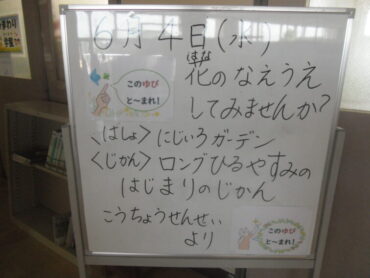 6月4日(水)
はな
花のなえうえ
してみませんか?
このゆび
と~まれ!
<ばしょ>にじいろガーデン
<じかん>ロングひるやすみの
はじまりのじかん
こうちょうせんせい
より
このゆび
と~まれ!